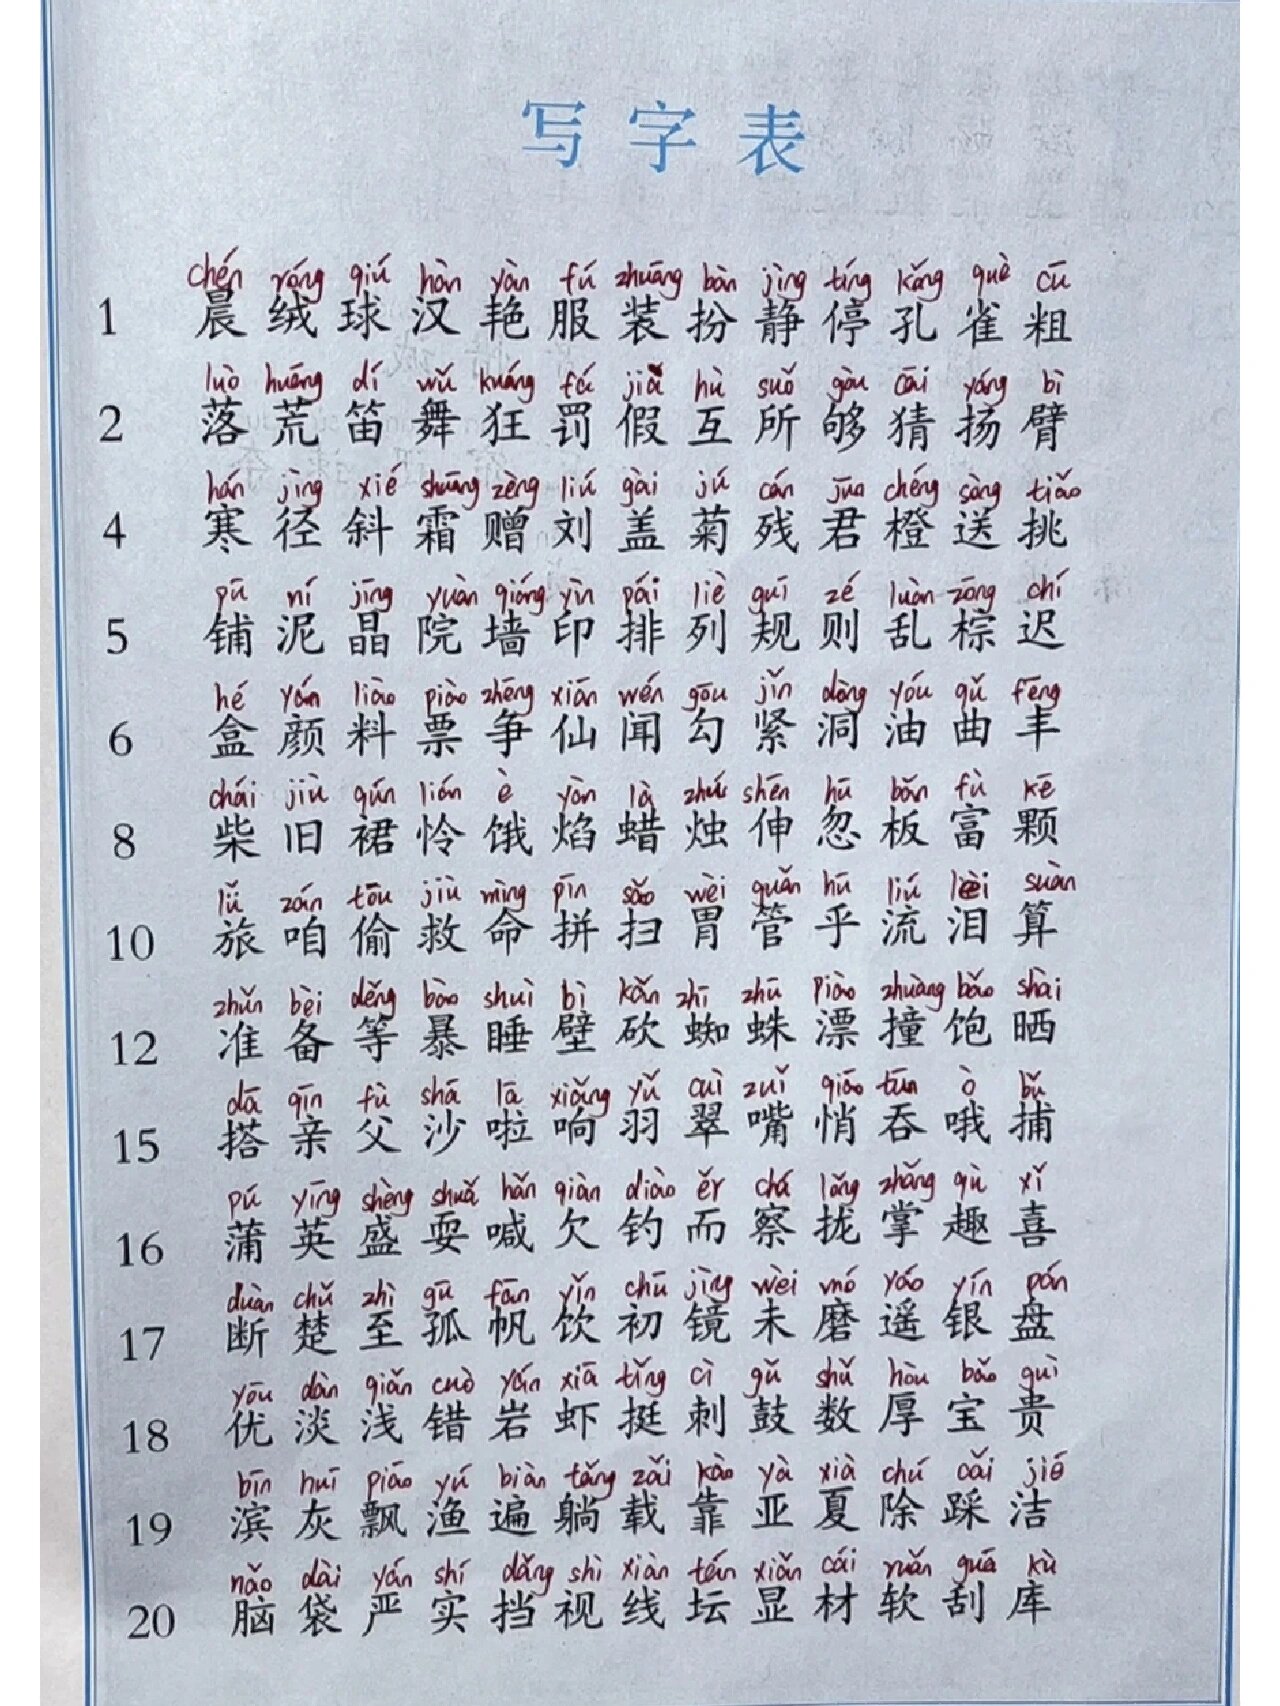 写字表
chén róng qiú hàn yàn fú zhuāng bàn jìng tíng kǒng què cū
1 晨 绒 球 汉 艳 服 装 扮 静 停 孔 雀 粗
luò huāng dí wǔ kuáng fá jiǎ hù suǒ gòu cāi yáng bì
2 落 荒 笛 舞 狂 罚 假 互 所 够 猜 扬 臂
hán jìng xié shuāng zèng liú gài jú cán jūn chéng sòng tiǎo
4 寒 径 斜 霜 赠 刘 盖 菊 残 君 橙 送 挑
pū ní jīng yuàn qiáng yìn pái liè guī zé luàn zōng chí
5 铺 泥 晶 院 墙 印 排 列 规 则 乱 棕 迟
hé yán liào piào zhēng xiān wén gōu jǐn dòng yóu qǔ fēng
6 盒 颜 料 票 争 仙 闻 勾 紧 洞 油 曲 丰
chái jiù qún lián è yàn là zhú shēn hū bǎn fù kē
8 柴 旧 裙 怜 饿 焰 蜡 烛 伸 忽 板 富 颗
lǚ zán tōu jiù mìng pīn sǎo wèi guǎn hū liú lèi suàn
10 旅 咱 偷 救 命 拼 扫 胃 管 乎 流 泪 算
zhǔn bèi děng bào shuì bì kǎn zhī zhū piào zhuàng bǎo shài
12 准 备 等 暴 睡 壁 砍 蜘 蛛 漂 撞 饱 晒
dā qīn fù shā lā xiǎng yǔ cuì zuǐ qiāo tūn ò bǔ
15 搭 亲 父 沙 啦 响 羽 翠 嘴 悄 吞 哦 捕
pú yīng shèng shuǎ hǎn qiàn diào ér chá lǒng zhǎng qù xǐ
16 蒲 英 盛 耍 喊 欠 钓 而 察 拢 掌 趣 喜
duàn chǔ zhì gū fān yǐn chū jìng wèi mó yáo yín pán
17 断 楚 至 孤 帆 饮 初 镜 未 磨 遥 银 盘
yōu dàn qiǎn cuò yán xiā tǐng cì gǔ shǔ hòu bǎo guì
18 优 淡 浅 错 岩 虾 挺 刺 鼓 数 厚 宝 贵
bīn huī piāo yú biàn tǎng zǎi kào yà xià chú cǎi jié
19 滨 灰 飘 渔 遍 躺 载 靠 亚 夏 除 踩 洁
nǎo dài yán shí dǎng shì xiàn tán xiǎn cái ruǎn guā kù
20 脑 袋 严 实 挡 视 线 坛 显 材 软 刮 库